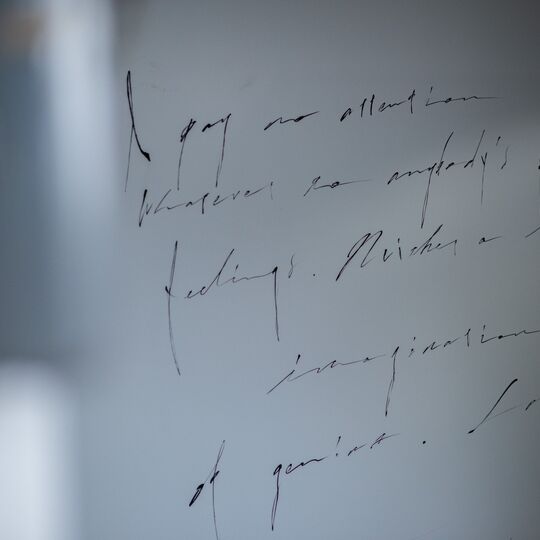 I pay no attention
Whatever to anybody's
feelings. Neither a
imagination
of genius.